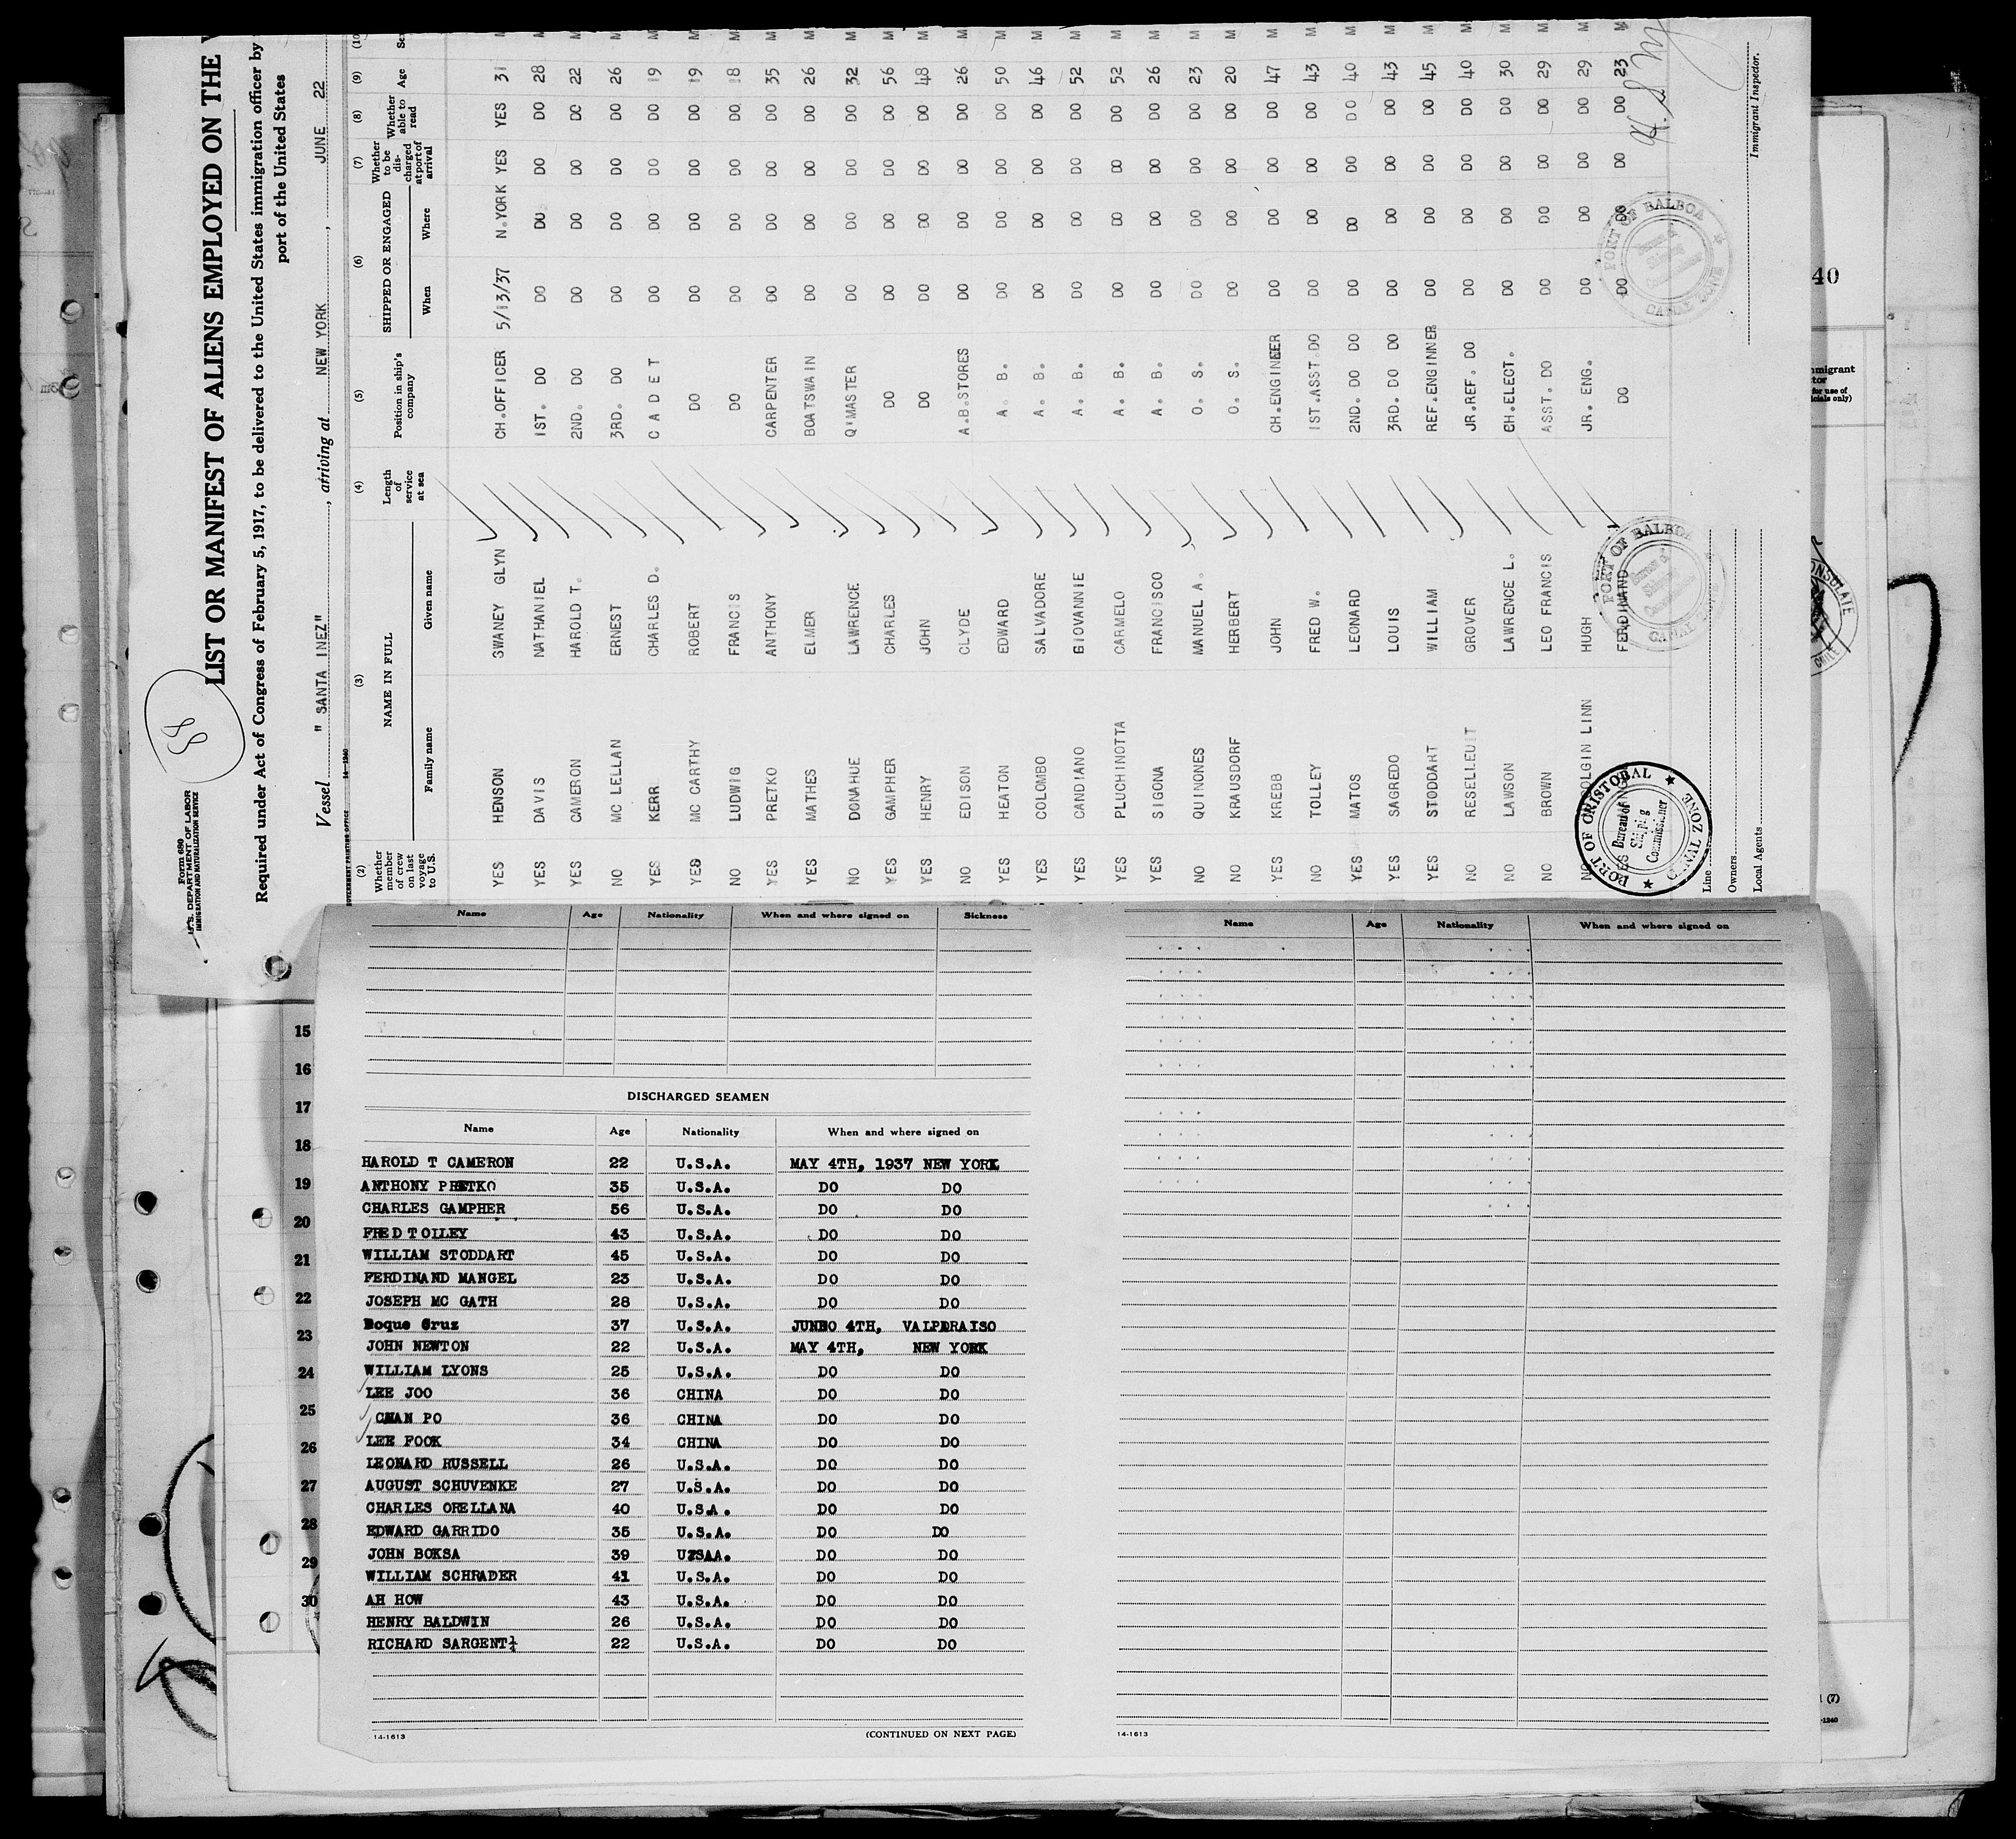 Form 680
U.S. DEPARTMENT OF LABOR
IMMIGRATION AND NATURALIZATION SERVICE
88
LIST OR MANIFEST OF ALIENS EMPLOYED ON THE
Required under Act of Congress of February 5, 1917, to be delivered to the United States immigration officer by
port of the United States
Vessel " SANTA INEZ" , arriving at NEW YORK , JUNE 22
(2) (3) (4) (5) (6) (7) (8) (9) (10
Whether member of crew on last voyage to U.S. NAME IN FULL Family name Given name Length of service at sea Position in ship's company SHIPPED OR ENGAGED When Where Whether to be discharged at port of arrival Whether able to read Age Sex
YES HENSON SWANEY GLYN CH.OFFICER 5/13/37 N.YORK YES YES 31 M
YES DAVIS NATHANIEL 1ST. DO DO DO DO DO 28 M
YES CAMERON HAROLD T. 2ND. DO DO DO DO DO 22 M
NO MC LELLAN ERNEST 3RD. DO DO DO DO DO 26 M
YES KERR CHARLES D. C A D E T DO DO DO DO 19 M
YES MC CARTHY ROBERT DO DO DO DO DO 19 M
NO LUDWIG FRANCIS DO DO DO DO DO 18 M
YES PRETKO ANTHONY CARPENTER DO DO DO DO 35 M
YES MATHES ELMER BOATSWAIN DO DO DO DO 26 M
NO DONAHUE LAWRENCE Q'MASTER DO DO DO DO 32 M
YES GAMPHER CHARLES DO DO DO DO DO 56 M
YES HENRY JOHN DO DO DO DO DO 48 M
NO EDISON CLYDE A.B.STORES DO DO DO DO 26 M
YES HEATON EDWARD A. B. DO DO DO DO 50 M
YES COLOMBO SALVADORE A. B. DO DO DO DO 46 M
YES CANDIANO GIOVANNIE A. B. DO DO DO DO 52 M
YES PLUCHINOTTA CARMELO A. B. DO DO DO DO 52 M
YES SIGONA FRANCISCO A. B. DO DO DO DO 26 M
NO QUINONES MANUEL A. O. S. DO DO DO DO 23 M
NO KRAUSDORF HERBERT O. S. DO DO DO DO 20 M
YES KREBB JOHN CH.ENGINEER DO DO DO DO 47 M
NO TOLLEY FRED W. 1ST.ASST.DO DO DO DO DO 43 M
YES MATOS LEONARD 2ND. DO DO DO DO DO DO 40 M
YES SAGREDO LOUIS 3RD. DO DO DO DO DO DO 43 M
YES STODDART WILLIAM REF.ENGINNER DO DO DO DO 45 M
NO RESELNEUIT GROVER JR.REF. DO DO DO DO DO 40 M
NO LAWSON LAWRENCE L. CH.ELECT. DO DO DO DO 30 M
NO BROWN LEO FRANCIS ASST. DO DO DO DO DO 29 M
NO LINN HUGH JR. ENG. DO DO DO DO 29 M
YES FERDINAND DO DO DO DO DO 23 M
PORT OF CRISTOBAL
CANAL ZONE
Bureau of Shipping Commissioner
PORT OF BALBOA
CANAL ZONE
PORT OF BALBOA
CANAL ZONE
Line
Owners
Local Agents
Immigrant Inspector.
40
CONSULATE
CHILE
Name Age Nationality When and where signed on Sickness
DISCHARGED SEAMEN
Name Age Nationality When and where signed on
HAROLD T CAMERON 22 U.S.A. MAY 4TH, 1937 NEW YORK
ANTHONY PRETKO 35 U.S.A. DO DO
CHARLES GAMPHER 56 U.S.A. DO DO
FRED TOLLEY 43 U.S.A. DO DO
WILLIAM STODDART 45 U.S.A. DO DO
FERDINAND MANGEL 23 U.S.A. DO DO
JOSEPH MC GATH 28 U.S.A. DO DO
Roque Cruz 37 U.S.A. 4TH, VALPARAISO
JOHN NEWTON 22 U.S.A. MAY 4TH, NEW YORK
WILLIAM LYONS 25 U.S.A. DO DO
LEE JOO 36 CHINA DO DO
CHAN PO 36 CHINA DO DO
LEE FOOK 34 CHINA DO DO
LEONARD RUSSELL 26 U.S.A. DO DO
AUGUST SCHUVENKE 27 U.S.A. DO DO
CHARLES ORELLANA 40 U.S.A. DO DO
EDWARD GARRIDO 35 U.S.A. DO DO
JOHN BOKSA 39 DO DO
WILLIAM SCHRADER 41 U.S.A. DO DO
AH HOW 43 U.S.A. DO DO
HENRY BALDWIN 26 U.S.A. DO DO
RICHARD SARGENT¼ 22 U.S.A. DO DO
14-1613 (CONTINUED ON NEXT PAGE)
Name Age Nationality When and where signed on
14-1613
15
16
17
18
19
20
21
22
23
24
25
26
27
28
29
30